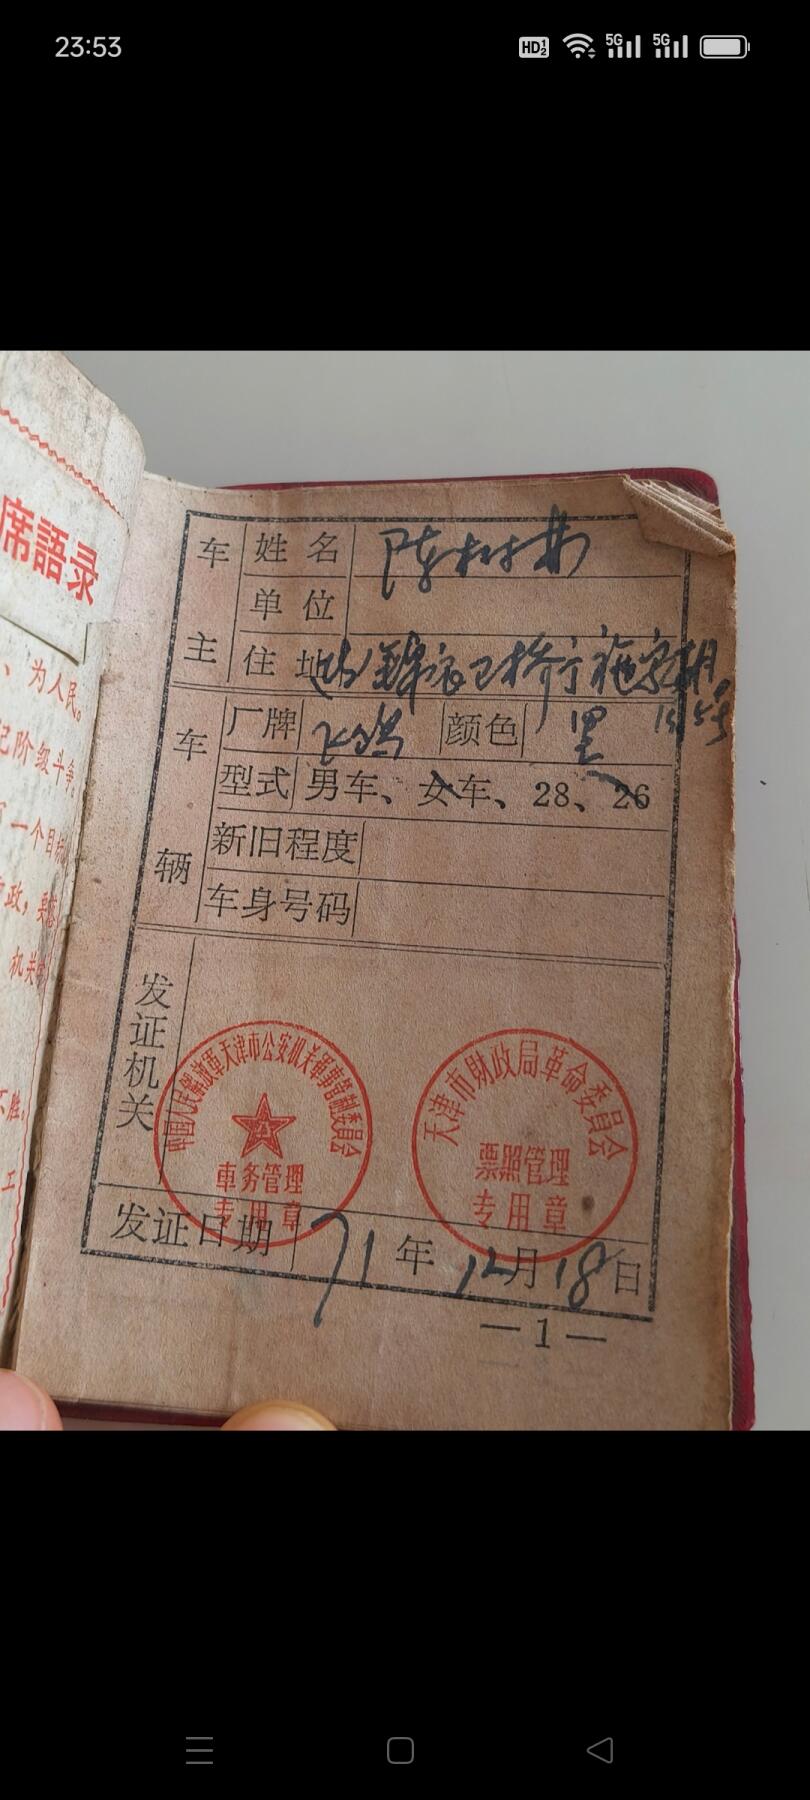 23:53
HD
5G 5G
席語录
、为人民。
记阶级斗争
一个目标
政，
机关
不胜。
工
车主
姓名 陈树
单位
住址
车辆
厂牌 飞鸽 颜色 黑
型式 男车、女车、28、26
新旧程度
车身号码
发证机关
中国人民解放軍天津市公安机关軍事管制委員会
車务管理
专用章
天津市財政局革命委員会
票照管理
专用章
发证日期 71年12月18日
—1—